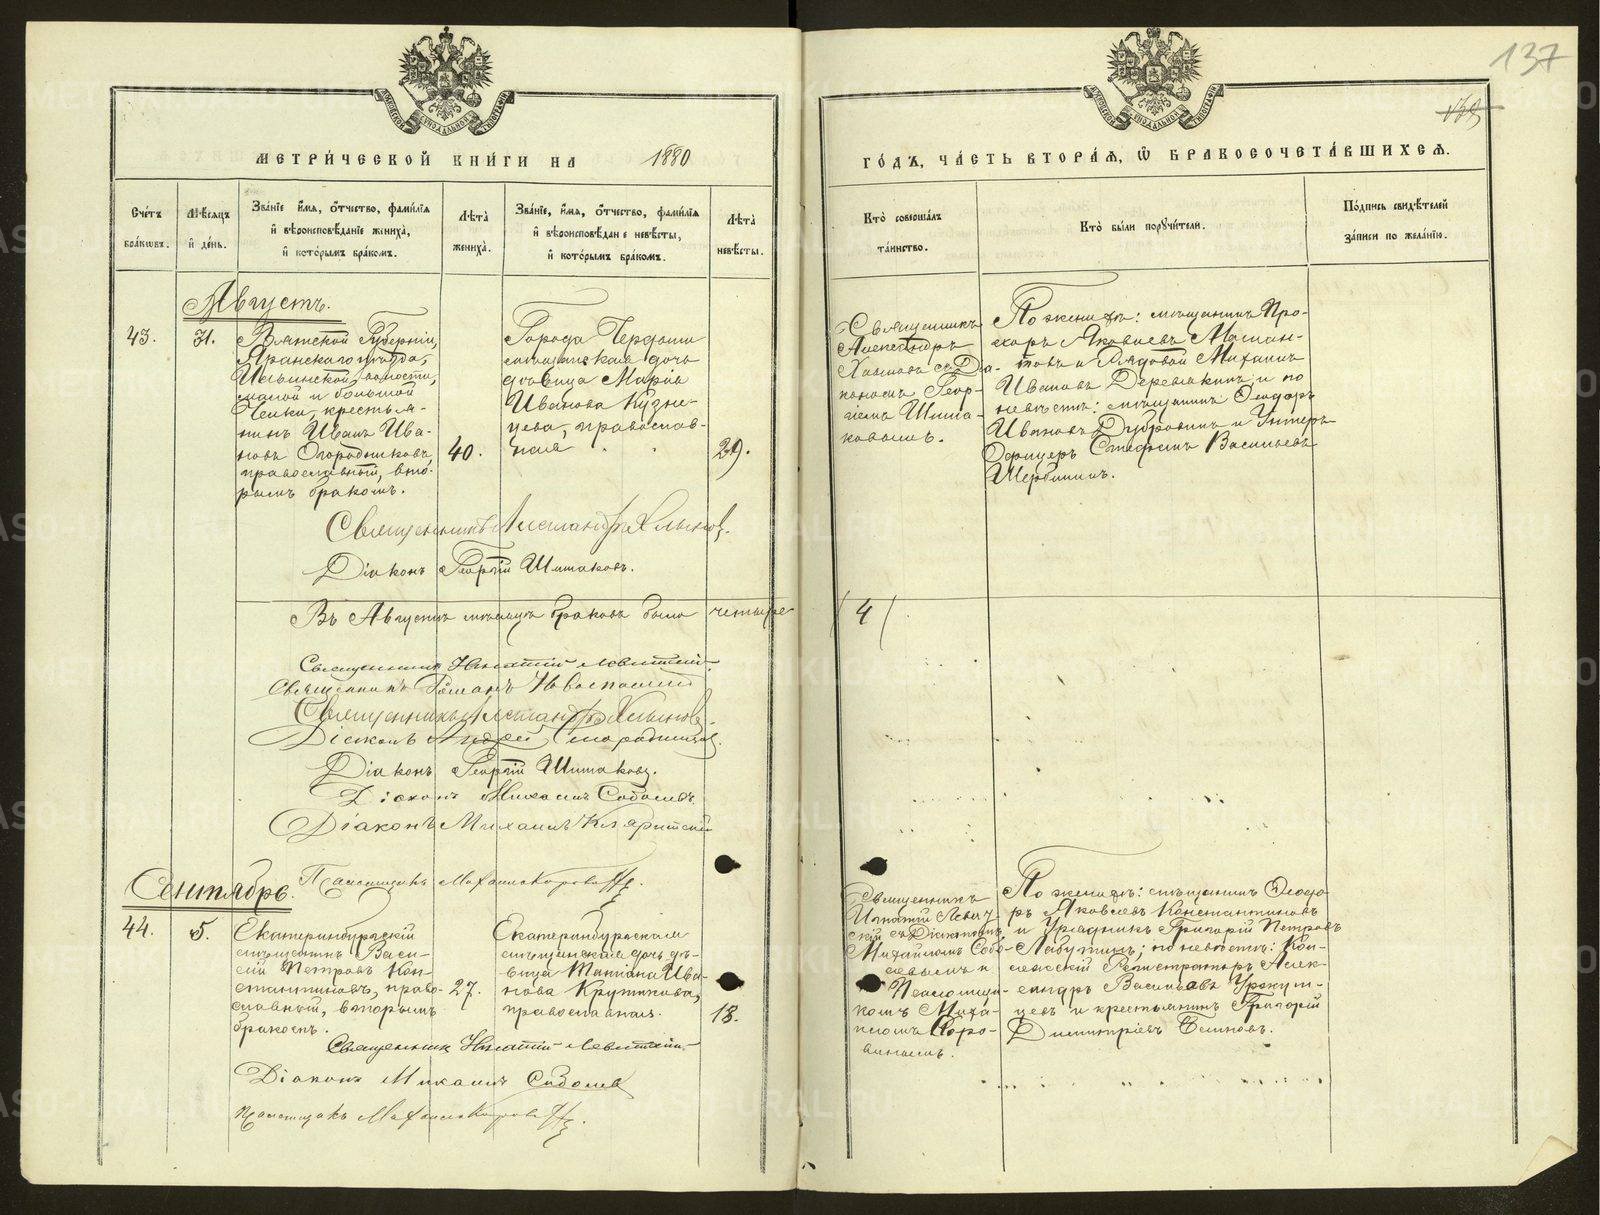 137
МЕТРИ́ЧЕСКОЙ КНИ́ГИ НА 1880
ГО́ДЪ, ЧА́СТЬ ВТОРА́Я, Ѽ БРАКОСОЧЕТА́ВШИХСЯ.
Сче́тъ бра́кωвъ.
Мѣ́сяцъ и҆ де́нь.
Зва́нїе и҆́мя, о҆́тчество, фами́лїя
и҆ вѣроисповѣ́данїе жениха̀,
и҆ кото́рымъ бра́комъ.
Лѣ́та̀
жениха̀.
Зва́нїе, и҆́мя, о҆́тчество, фами́лїя
и҆ вѣроисповѣ́данїе невѣ́сты,
и҆ кото́рымъ бра́комъ.
Лѣ́та̀
невѣ́сты.
Кто̀ соверша́лъ
та́инство.
Кто̀ бы́ли порꙋчи́тели.
По́дпись свидѣ́телей
за́писи по жела́нїю.
Августъ.
43.
31.
Вятской Губерніи,
Яранскаго уѣзда,
Ильинской волости,
малой и большой
крестья-
нинъ Иванъ Ива-
новъ Огородниковъ,
православный, вто-
рымъ бракомъ.
40.
Города Чердыни
мѣщанская дочь
дѣвица Марія
Иванова Кузне-
цева, православ-
ная
29.
Священникъ
Александръ
Хлыновъ съ Діа-
кономъ Геор-
гіемъ Шиша-
ковымъ.
По женихѣ: мѣщанинъ Про-
хоръ Яковлевъ
и Рядовой Михаилъ
Ивановъ Деревякинъ, и по
невѣстѣ: мѣщанинъ Ѳеодоръ
Ивановъ Дубровинъ и Унтеръ-
Офицеръ Стефанъ Васильевъ
Щербининъ.
Священникъ Александръ Хлыновъ.
Діаконъ Георгій Шишаковъ.
Въ Августѣ мѣсяцѣ браковъ было четыре
(4)
Священникъ Игнатій Левитскій.
Священникъ Романъ
Священникъ Александръ Хлыновъ.
Діаконъ Андрей
Діаконъ Георгій Шишаковъ.
Діаконъ Михаилъ Соболевъ.
Діаконъ Михаилъ
Псаломщикъ Михаилъ
Сентябрь.
44.
5.
Екатеринбургскій
мѣщанинъ Васи-
лій Петровъ Кон-
стантиновъ, право-
славный, вторымъ
бракомъ.
27.
Екатеринбургская
мѣщанская дочь дѣ-
вица Татіана Ива-
нова Крутикова,
православная.
18.
Священникъ
Игнатій Левит-
скій съ Діакономъ
Михаиломъ Собо-
левымъ и
Псаломщи-
комъ Миха-
иломъ Коро-
винымъ.
По женихѣ: мѣщанинъ Ѳеодо-
ръ Яковлевъ Константиновъ
и Урядникъ Григорій Петровъ
Лабутинъ; по невѣстѣ: Кол-
лежскій Регистраторъ Алек-
сандръ Васильевъ
и крестьянинъ Григорій
Димитріевъ Блиновъ.
Священникъ Игнатій Левитскій.
Діаконъ Михаилъ Соболевъ
Псаломщикъ Михаилъ
METRIKI.GASO-URAL.RU